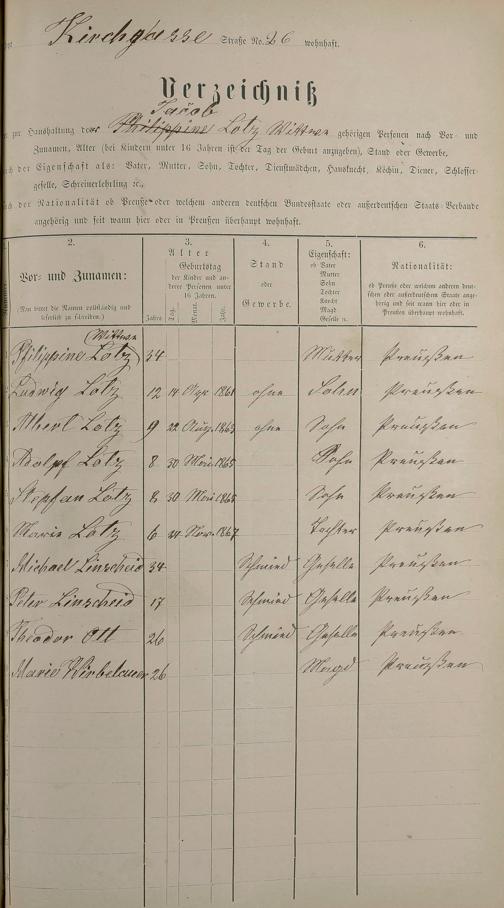 Kirchgasse Straße No. 26 wohnhaft.
Verzeichniß
Jacob
zur Haushaltung der Philippine Lotz Wittwe gehörigen Personen nach Vor- und
Zunamen, Alter (bei Kindern unter 16 Jahren ist der Tag der Geburt anzugeben), Stand oder Gewerbe,
nach der Eigenschaft als: Vater, Mutter, Sohn, Tochter, Dienstmädchen, Hausknecht, Köchin, Diener, Schlosser-
geselle, Schreinerlehrling ꝛc.,
nach der Nationalität ob Preuße oder welchem anderen deutschen Bundesstaate oder außerdeutschen Staats-Verbande
angehörig und seit wann hier oder in Preußen überhaupt wohnhaft.
2. 3. 4. 5. 6.
Vor- und Zunamen:
(Man bittet die Namen vollständig und
leserlich zu schreiben.)
Alter
Geburtstag
der Kinder und an-
derer Personen unter
16 Jahren.
Jahre Tag. Monat. Jahr.
Stand
oder
Gewerbe.
Eigenschaft:
ob Vater
Mutter
Sohn
Tochter
Knecht
Magd
Geselle ꝛc.
Nationalität:
ob Preuße oder welchem anderen deut-
schen oder außerdeutschen Staate ange-
hörig und seit wann hier oder in
Preußen überhaupt wohnhaft.
Wittwe
Philippine Lotz 34 Mutter Preußen
Ludwig Lotz 12 14 Apr 1861 ohne Sohn Preußen
Albert Lotz 9 22 Aug. 1863 ohne Sohn Preußen
Adolpf Lotz 8 30 Mai 1865 Sohn Preußen
Stepfan Lotz 8 30 Mai 1865 Sohn Preußen
Marie Lotz 6 24 Nov. 1867 Tochter Preußen
Michael Linscheid 34 Schmied Geselle Preußen
Peter Linscheid 17 Schmied Geselle Preußen
Theodor Ott 26 Schmied Geselle Preußen
Marie Wirbelauer 26 Magd Preußen